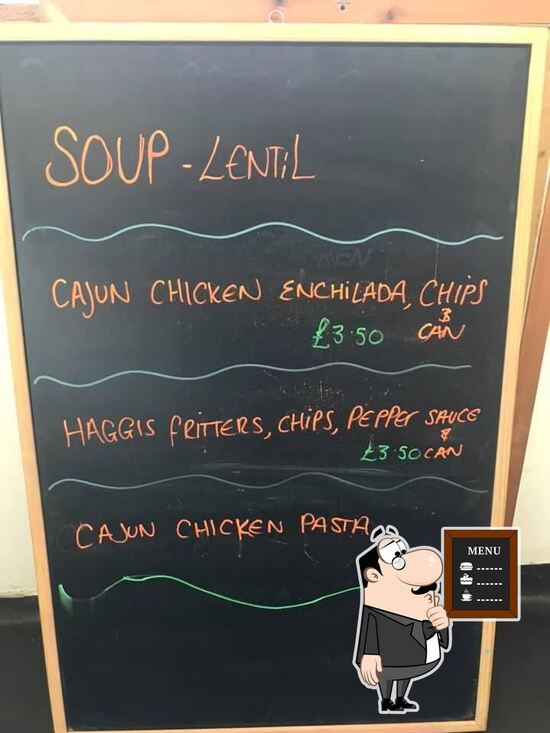 SOUP - LENTIL
CAJUN CHICKEN ENCHILADA, CHIPS
&
£3.50 CAN
HAGGIS FRITTERS, CHIPS, PEPPER SAUCE
&
£3.50 CAN
CAJUN CHICKEN PASTA
MENU